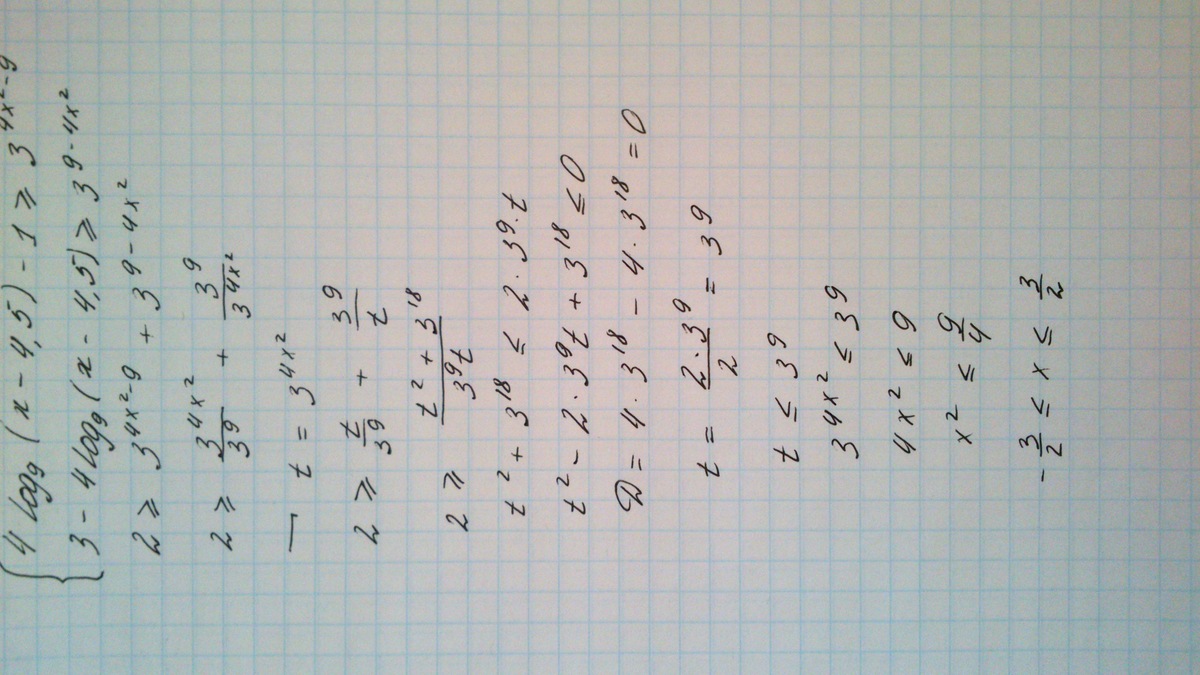 { 4 log₉ (x - 4,5) - 1 ≥ 3^(4x²-9)
3 - 4 log₉ (x - 4,5) ≥ 3^(9-4x²)
2 ≥ 3^(4x²-9) + 3^(9-4x²)
2 ≥ 3^(4x²)/3^9 + 3^9/3^(4x²)
— t = 3^(4x²)
2 ≥ t/3^9 + 3^9/t
2 ≥ (t² + 3^18)/(3^9 t)
t² + 3^18 ≤ 2 · 3^9 · t
t² - 2 · 3^9 t + 3^18 ≤ 0
D = 4 · 3^18 - 4 · 3^18 = 0
t = (2 · 3^9)/2 = 3^9
t ≤ 3^9
3^(4x²) ≤ 3^9
4x² ≤ 9
x² ≤ 9/4
-3/2 ≤ x ≤ 3/2